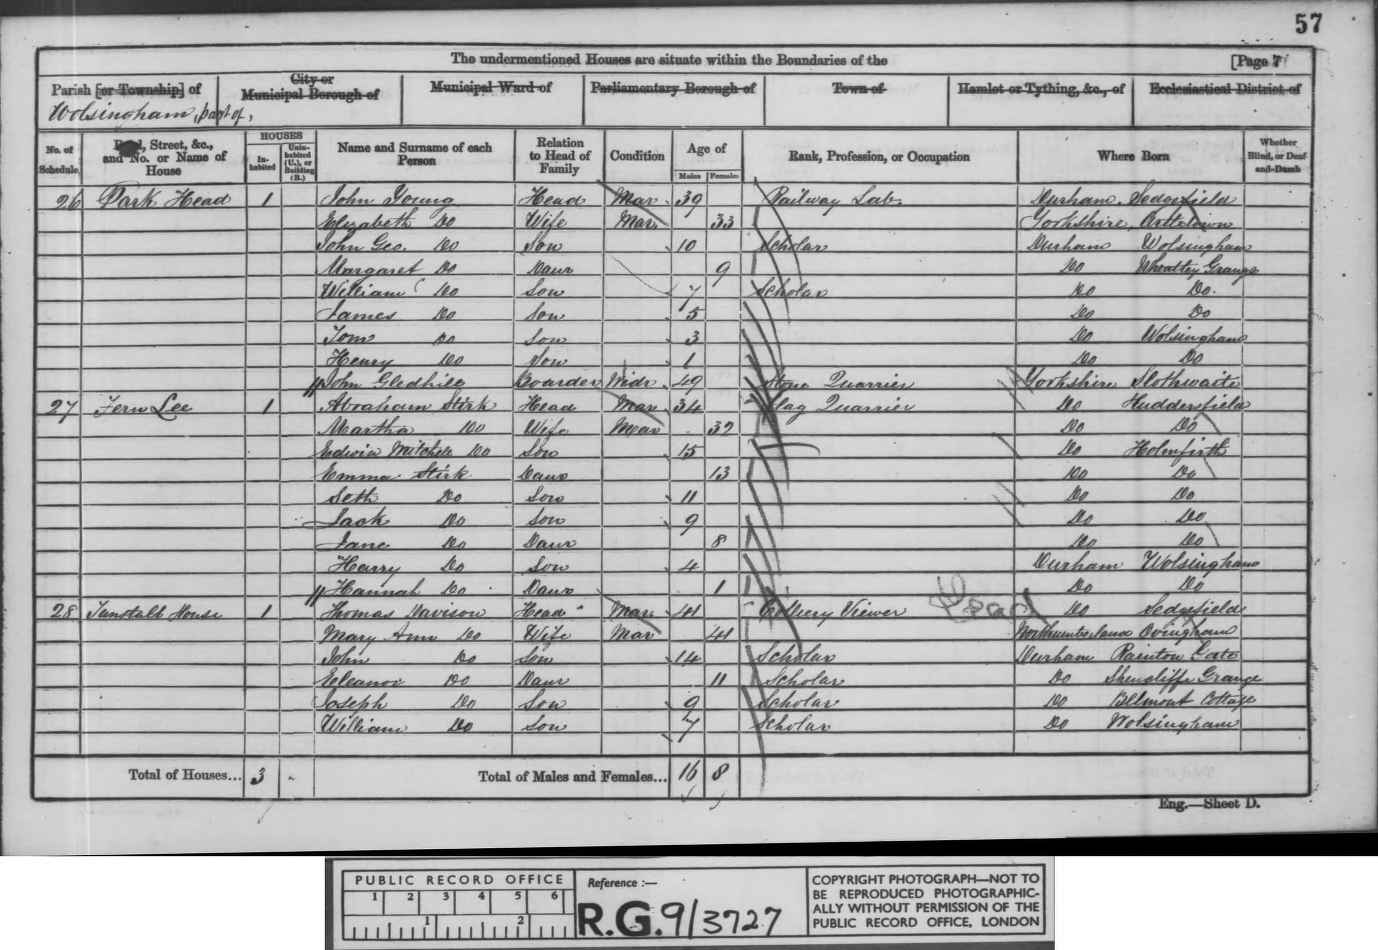 57
The undermentioned Houses are situate within the Boundaries of the [Page 7
Parish [or Township] of City or Municipal Borough of Municipal Ward of Parliamentary Borough of Town of Hamlet or Tything, &c., of Ecclesiastical District of
Wolsingham, part of,
No. of Schedule Road, Street, &c., and No. or Name of House HOUSES In-habited Unin-habited (U.), or Building (B.) Name and Surname of each Person Relation to Head of Family Condition Age of Males Females Rank, Profession, or Occupation Where Born Whether Blind, or Deaf-and-Dumb
26 Park Head 1 John Young Head Mar 39 Railway Lab. Durham Sedgefield
Elizabeth Do Wife Mar 33 Yorkshire
John Geo. Do Son 10 Scholar Durham Wolsingham
Margaret Do Daur 9 Do Wheatley Grange
William Do Son 7 Scholar Do Do
James Do Son 5 Do Do
Tom Do Son 3 Do Wolsingham
Henry Do Son 1 Do Do
John Gledhill Boarder Widr 49 Stone Quarrier Yorkshire Slothwaite
27 Fern Lee 1 Abraham Stirk Head Mar 34 Flag Quarrier Do Huddersfield
Martha Do Wife Mar 32 Do Do
Edwin Mitchell Do Son 15 Do Holmfirth
Emma Stirk Daur 13 Do Do
Seth Do Son 11 Do Do
Jack Do Son 9 Do Do
Jane Do Daur 8 Do Do
Harry Do Son 4 Durham Wolsingham
Hannah Do Daur 1 Do Do
28 Tunstall House 1 Thomas Davison Head Mar 41 Colliery Viewer Do Sedgefield
Mary Ann Do Wife Mar 41 Northumberland Ovingham
John Do Son 14 Scholar Durham Rainton Gate
Eleanor Do Daur 11 Scholar Do Shencliffe Grange
Joseph Do Son 9 Scholar Do Bellmont Cottage
William Do Son 7 Scholar Do Wolsingham
Total of Houses... 3 Total of Males and Females... 16 8
Eng.—Sheet D.
PUBLIC RECORD OFFICE
1 2 3 4 5 6
1 2
Reference :—
R.G. 9/3727
COPYRIGHT PHOTOGRAPH—NOT TO
BE REPRODUCED PHOTOGRAPHIC-
ALLY WITHOUT PERMISSION OF THE
PUBLIC RECORD OFFICE, LONDON